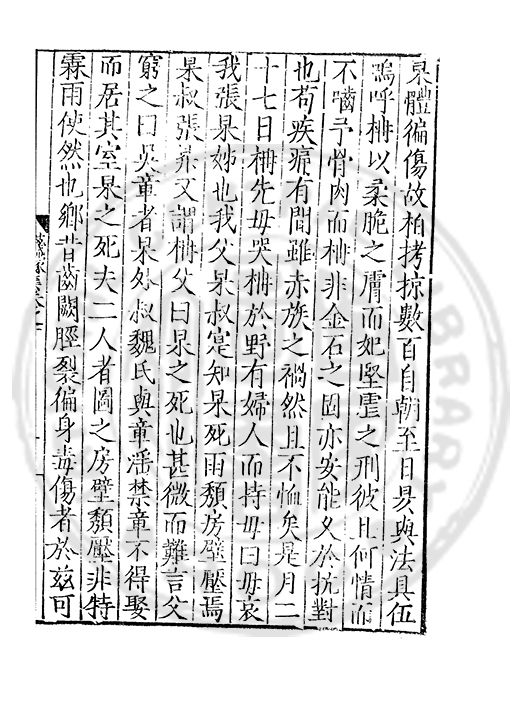 杲體徧傷故柏拷掠數百自朝至日昃與法具伍
嗚呼柟以柔脆之膚而犯堅重之刑彼且何情而
不嚙予骨肉而柟非金石之固亦安能久於抗對
也苟疾痛有間雖赤族之禍然且不恤矣是月二
十七日柟先母哭柟於野有婦人而持母曰母哀
我張杲姊也我父杲叔寔知杲死雨頽房壁壓焉
杲叔張昇又謂柟父曰杲之死也甚微而難言父
窮之曰吳童者杲外叔魏氏與童淫禁童不得娶
而居其室杲之死夫二人者圖之房壁頽壓非特
霖雨使然也鄉昔齒闕脛裂徧身毒傷者於兹可